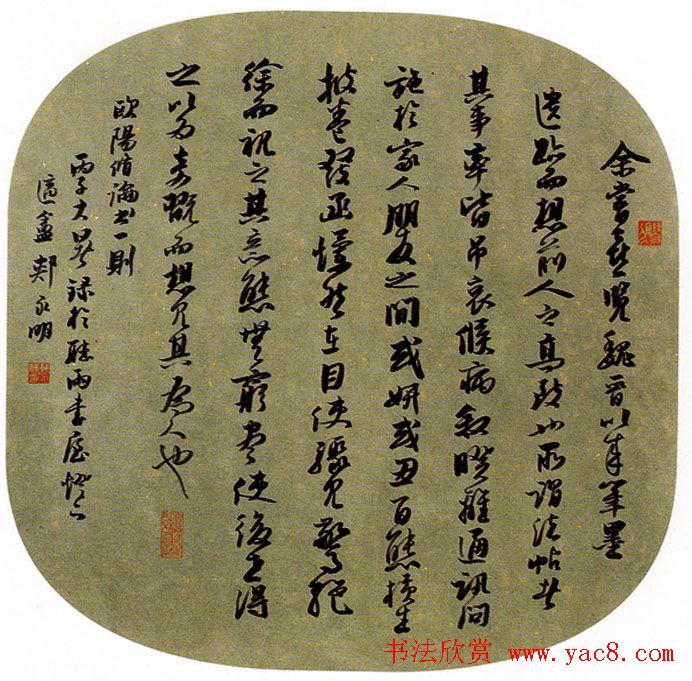 余嘗喜覽魏晉以來筆墨
遺跡而想前人之高致也所謂法帖者
其事率皆吊哀候病敘睽離通訊問
施於家人朋友之間或妍或丑百態橫生
披卷發函爛然在目使驟見驚絕
徐而視之其意態無窮盡使後世得
之以為奇翫而想見其為人也
歐陽脩論書一則
丙子大暑錄於聽雨書屋燈下
適盦郟永明
书法欣赏 www.yac8.com